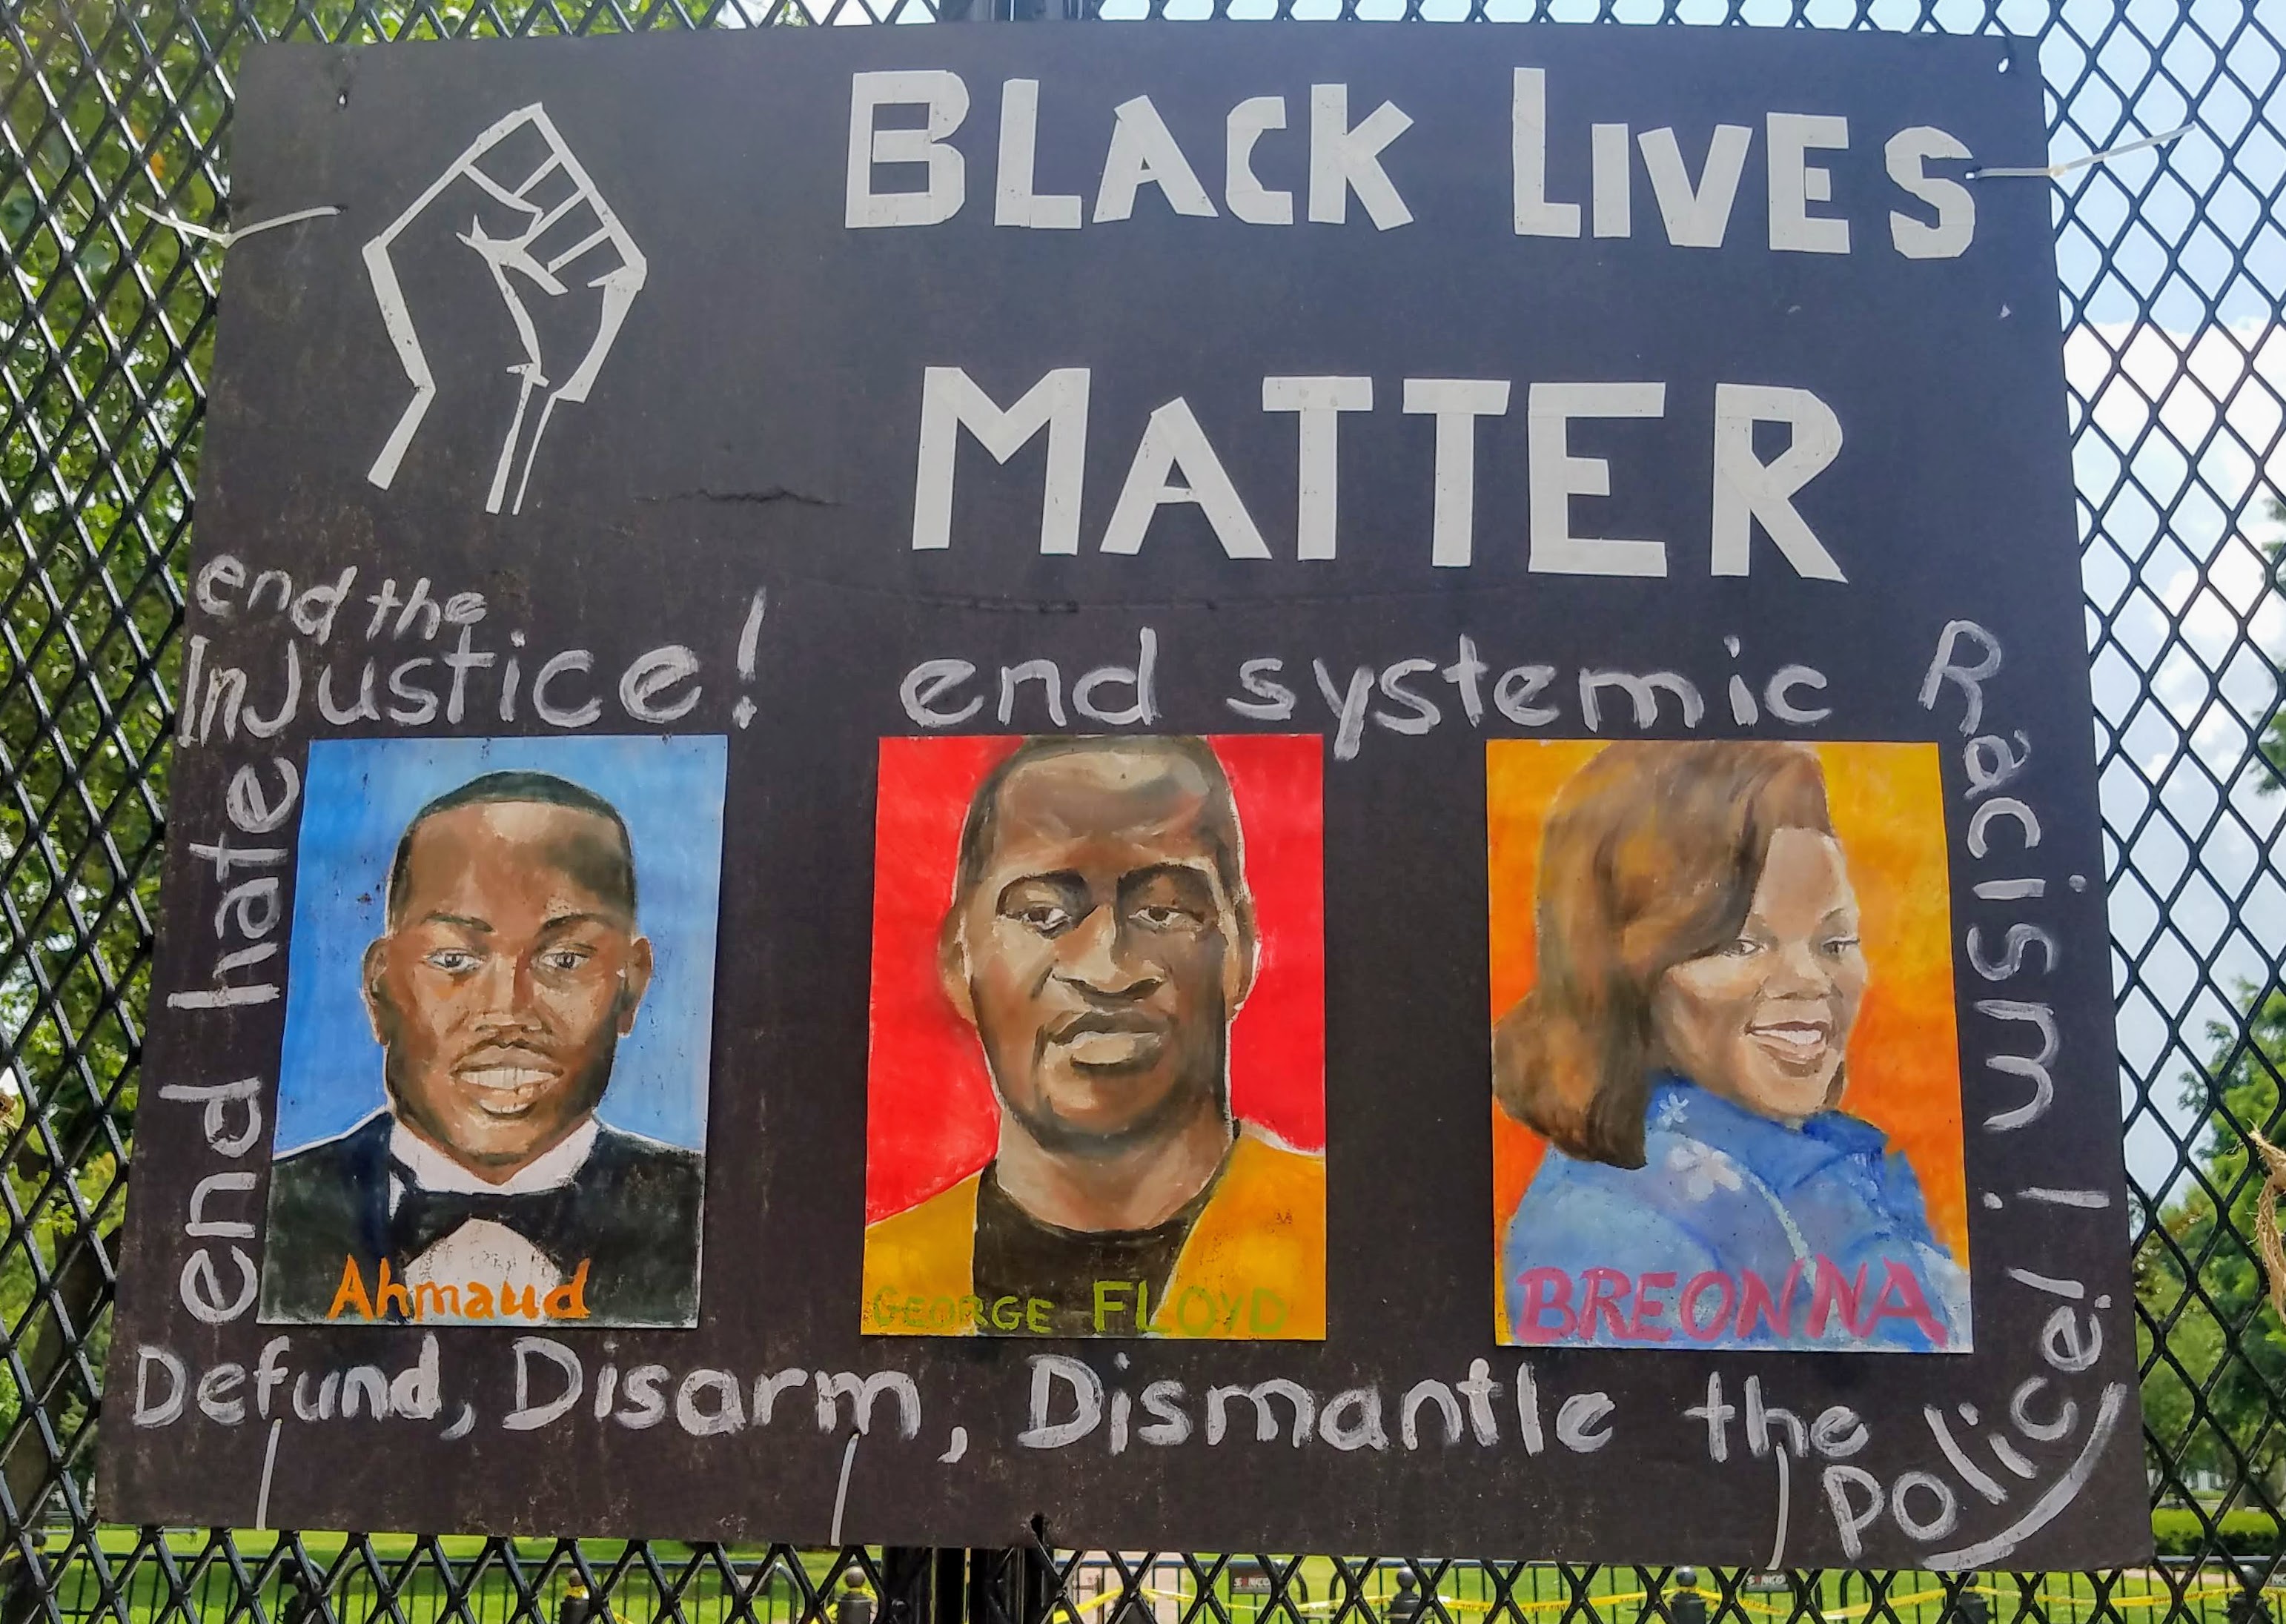 BLACK LIVES
MATTER
end the
InJustice!
end systemic
Racism!
end hate
Ahmaud
GEORGE FLOYD
BREONNA
Defund, Disarm, Dismantle the
Police!